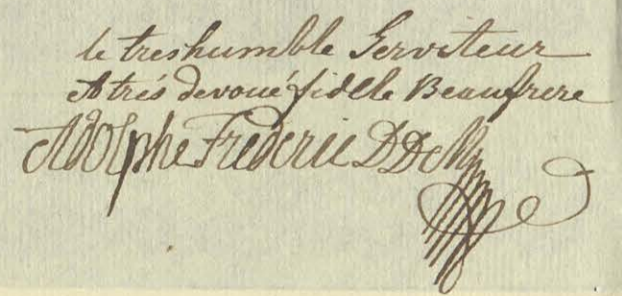 le tres humble Serviteur
et trés devoué fidelle Beaufrere
Adolphe Frederic D D M